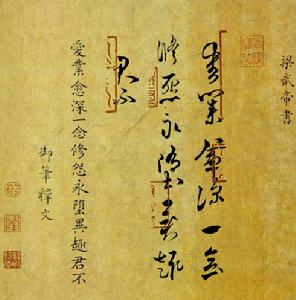 梁武帝書
愛業愈深一念
修怨永墮異趣
君不
愛業愈深一念修怨永墮異趣君不
御筆釋文